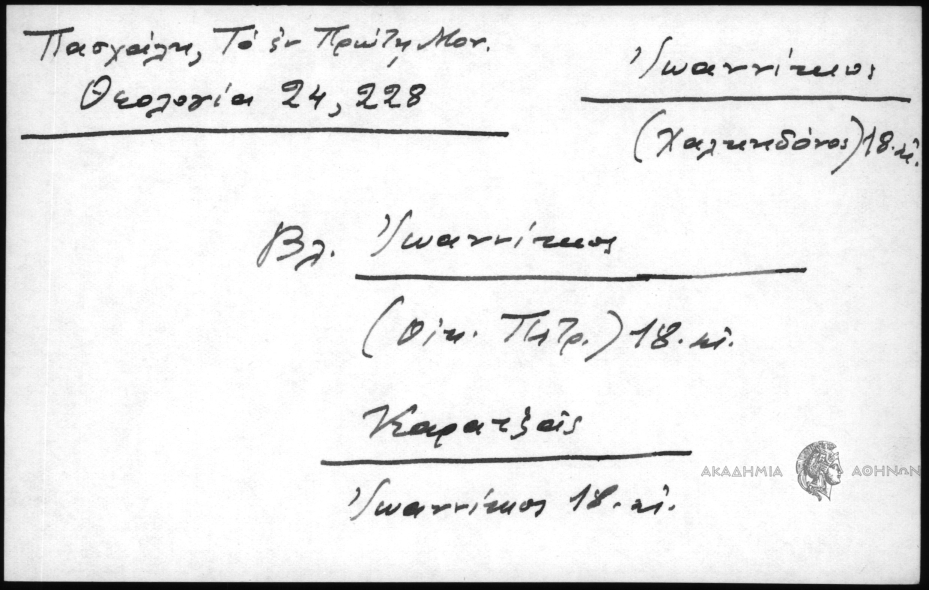 Πασχάλη, Τό ἐν Πρώτῃ Μον.
Θεολογία 24, 228
Ἰωαννίκιος
(Χαλκηδόνος) 18. αἰ.
Βλ. Ἰωαννίκιος
(Οἰκ. Πατρ.) 18. αἰ.
Καρατζᾶς
Ἰωαννίκιος 18. αἰ.
ΑΚΑΔΗΜΙΑ ΑΘΗΝΩΝ